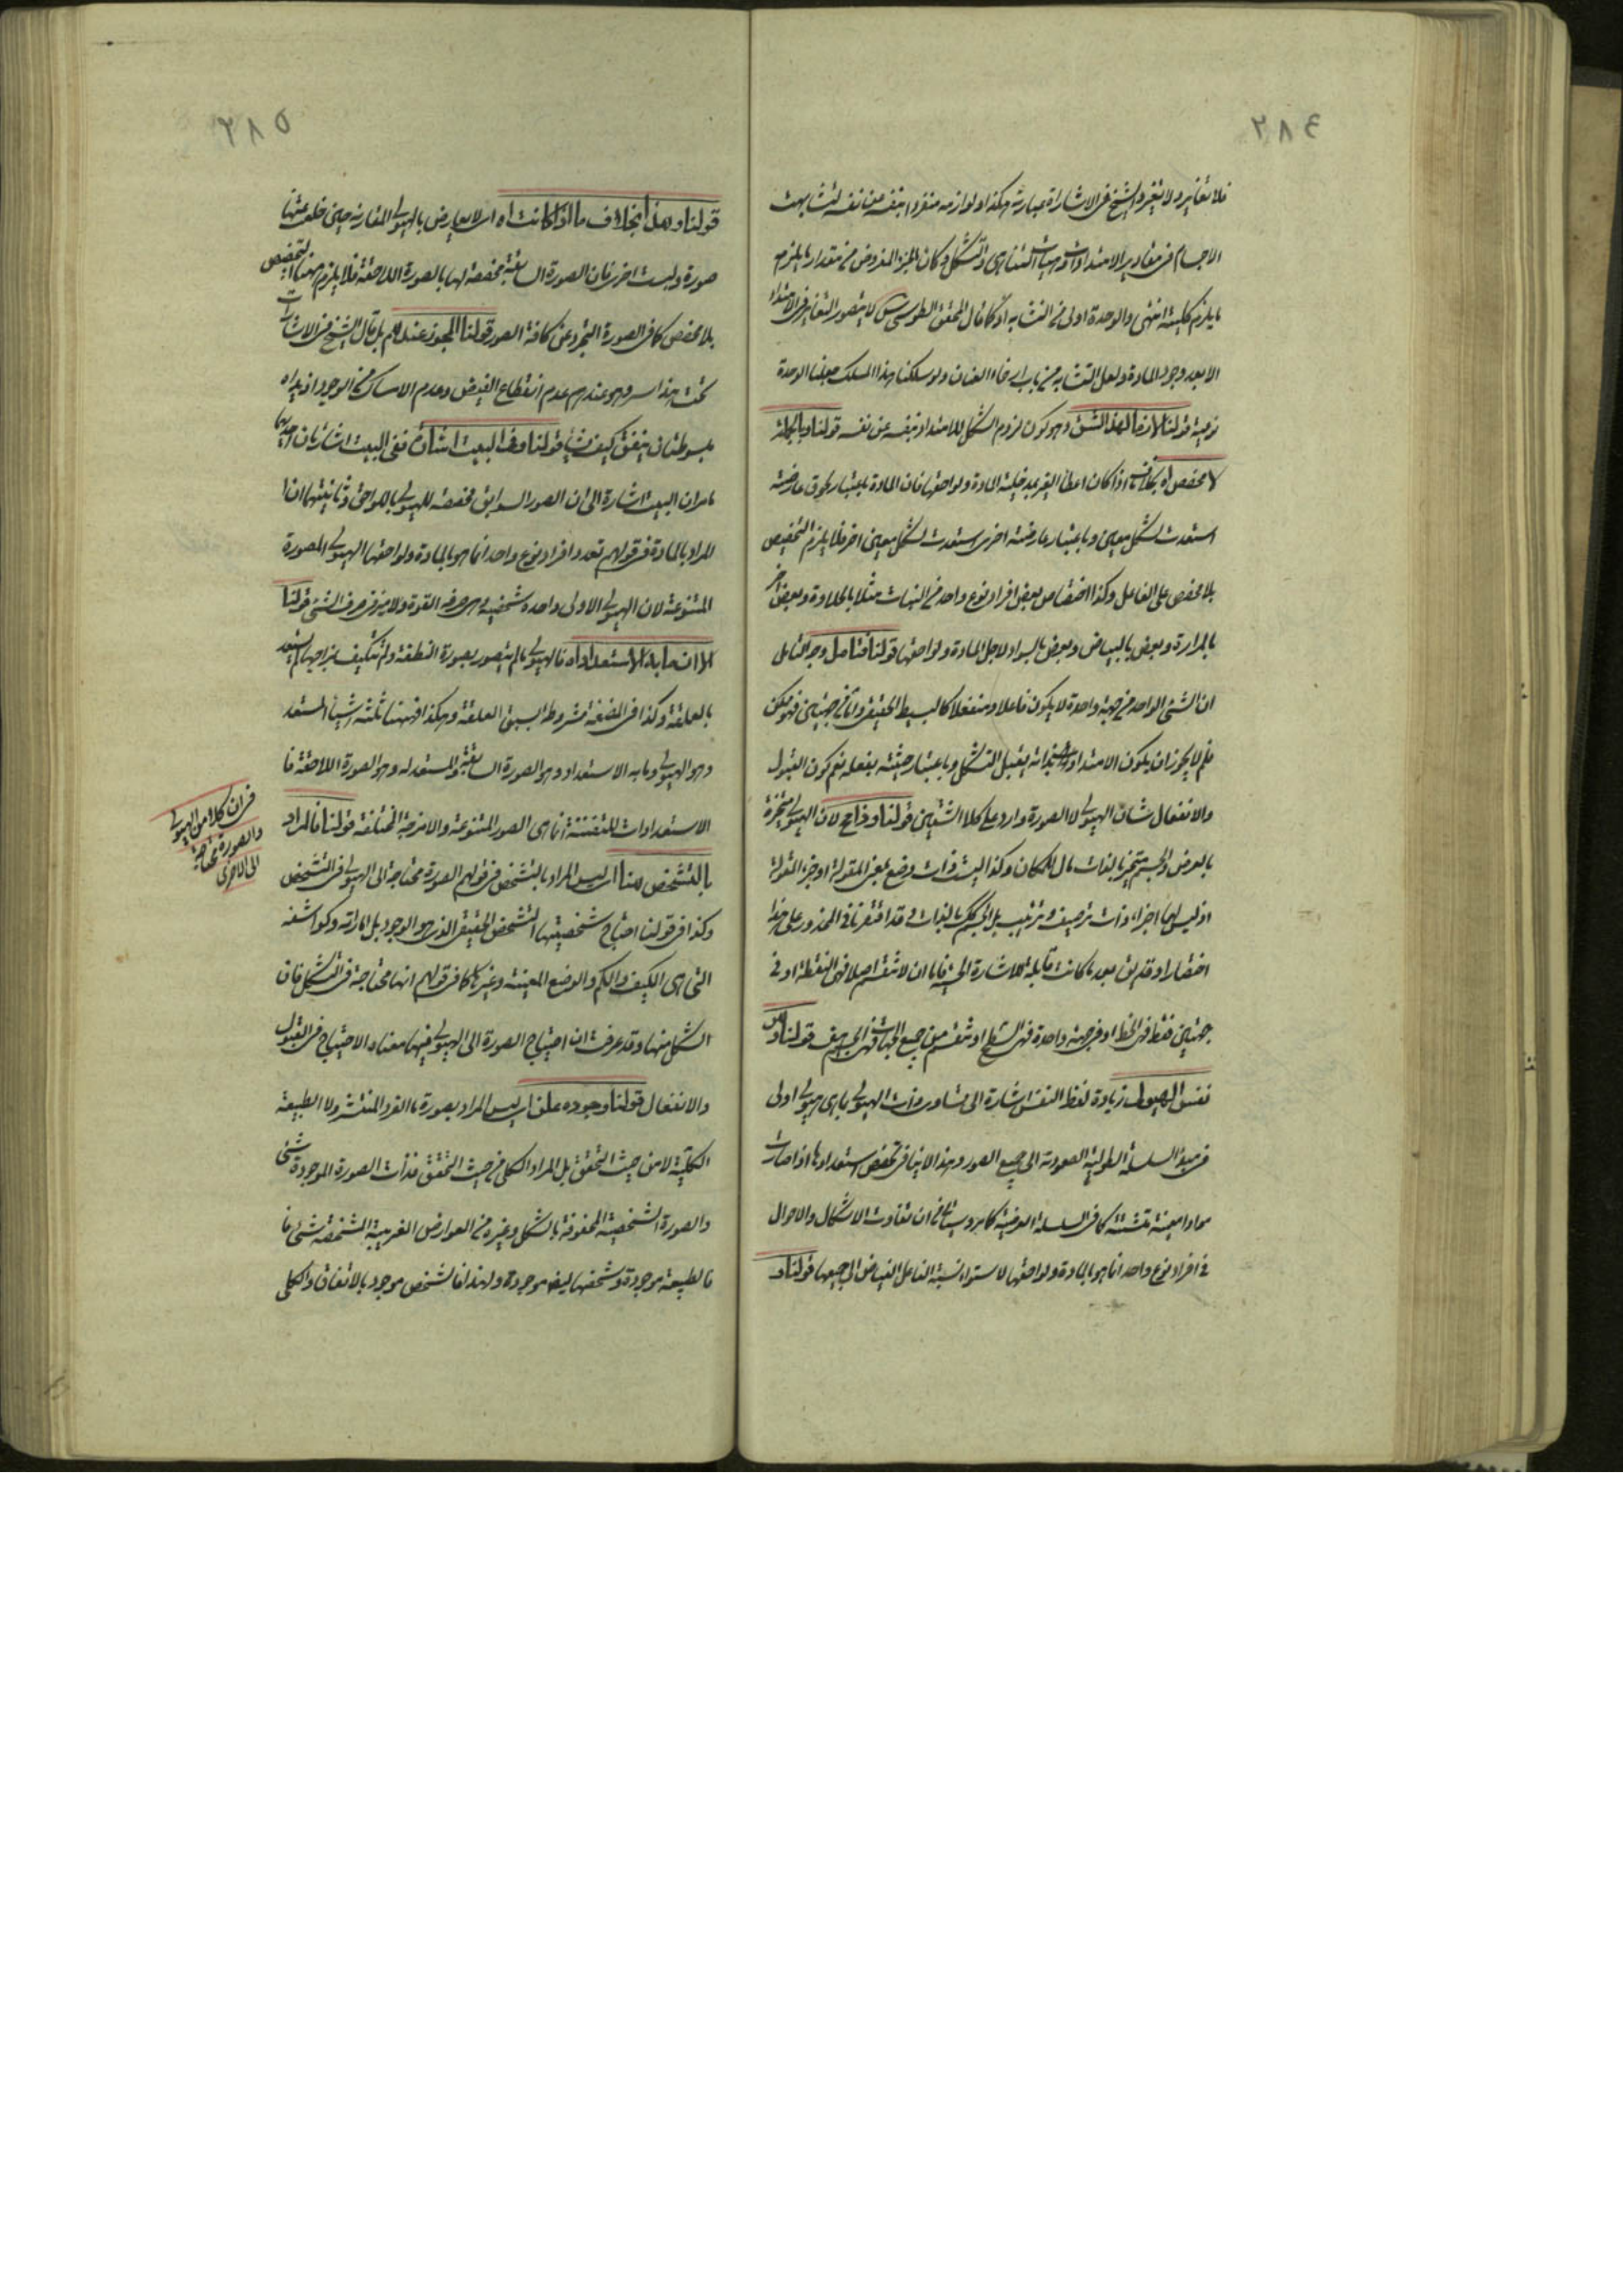 ٢٨٤
فلا تغاير ولا تغير والشيخ فى الاشارات عبارته هكذا ولوازمه منفردا بنفسه عن نفسه لتشابهت
الاجسام فى مقادير الامتدادات وهيئات التناهى والتشكل وكان الجزء المفروض من مقدار ما يلزمه
ما يلزم كليته انتهى والوحدة اولى من التشابه اذ كما قال المحقق الطوسى س لا يتصور التغاير فى الامتداد
الا بعد وجود المادة ولعل التشابه من باب ارخاء العنان ولو سلكنا هذا المسلك جعلنا الوحدة
قولنا لازما لهذا الشق وهو كون لزوم الشكل للامتداد بنفسه عن نفسه قولنا وبالجملة
لا مخصص اه بخلاف ما اذا كان اعطاء الغير بمدخلية المادة ولواحقها فان المادة باعتبار لحوق عارضة
استعدت لشكل معين وباعتبار عارضة اخرى استعدت لشكل معين اخر فلا يلزم التخصيص
بلا مخصص على الفاعل وكذا اختصاص بعض افراد نوع واحد من النبات مثلا بالحلاوة وبعض اخر
بالمرارة وبعض بالبياض وبعض بالسواد لاجل المادة ولواحقها قولنا فتامل وجه التامل
ان الشئ الواحد من جهة واحدة لا يكون فاعلا ومنفعلا كالبسيط الحقيقى واما من جهتين فهو ممكن
فلم لا يجوز ان يكون الامتداد يقبل التشكل وباعتبار حيثية يفعله نعم كون القبول
والانفعال شان الهيولى لا الصورة وارد على كلا الشقين قولنا وذا حجم لان الهيولى متحيزة
بالعرض والجسم متحيز بالذات مال للمكان وكذا ليست ذات وضع بمعنى المقولة او جزء المقولة
اذ ليس لها اجزاء ذات ترصيف وترتيب بل الجسم كك بالذات وقد اقتفرنا فى المحذور على هذا
اختصارا وقد بقى بعد ما كانت قابلة للاشارة الحسية فاما ان لا تنقسم اصلا فهى النقطة او فى
جهتين فقط فهى الخط او فى جهة واحدة فهى السطح او تنقسم من جميع الجهات فهى الجسم هف قولنا
نفس الهيولى زيادة لفظ النفس اشارة الى تساوى ذات الهيولى بما هى هيولى اولى
فى مبدء السلسلة الطولية الصعودية الى جميع الصور وهذا لا ينافى تخصص استعدادها اذا صارت
موادا معينة متشتتة كما فى السلسلة العرضية كما مر وسياتى من ان تفاوت الاشكال والاحوال
فى افراد نوع واحد انما هو بالمادة ولواحقها لاستواء نسبة الفاعل الفياض الى جميعها قولنا و
٢٨٥
قولنا وهذا بخلاف ما اذا كانت اه اى لا يعارض بالهيولى المقارنة حين خلعت عنها
صورة ولبست اخرى فان الصورة السابقة مخصصة لها بالصورة اللاحقة فلا يلزم ههنا التخصيص
بلا مخصص كما فى الصورة التجرد عن كافة الصور قولنا المجوز عندهم بل قال الشيخ فى الاشارات
تحت هذا سر وهو عندهم عدم انقطاع الفيض وعدم الامساك من الوجود اذ يداه
مبسوطتان ينفق كيف يشاء قولنا وفى البيت اشارة ففى البيت اشارتان احديهما
ما مر ان البيت اشارة الى ان الصور السوابق مخصصة للهيولى باللواحق وثانيتهما ان
المراد بالمادة فى قولهم تعدد افراد نوع واحد انما هو بالمادة ولواحقها الهيولى المصورة
المتنوعة لان الهيولى الاولى واحدة شخصية وهى صرفة القوة ولا ميز فى صرف الشئ قولنا
الا ان ما به الاستعداد اه فالهيولى ما لم يتصور بصورة النطفة ولم تتكيف بمزاجها لم يستعد
بالعلقة وكذا فى المضغة مشروطة بسبق العلقة وهكذا فههنا ثلثة اشياء المستعد
وهو الهيولى وما به الاستعداد وهو الصورة السابقة والمستعد له وهو الصورة اللاحقة فما
الاستعدادات المتفننة انما هى الصور المتنوعة والامزجة المختلفة قولنا فالمراد
بالتشخص هنا اى ليس المراد بالتشخص فى قولهم الصورة محتاجة الى الهيولى فى التشخص
وكذا فى قولنا احتياج شخصيتها التشخص الحقيقى الذى هو الوجود بل اماراته وكواشفه
التى هى الكيف والكم والوضع المعينة وغيرها كما فى قولهم انها محتاجة فى التشكل فان
الشكل منها وقد عرفت ان احتياج الصورة الى الهيولى فيها معناه الاحتياج فى القبول
والانفعال قولنا وجوده علن اى ليس المراد بصورة ما الفرد المنتشر ولا الطبيعة
الكلية لا من حيث التحقق بل المراد الكلى من حيث التحقق فذات الصورة الموجودة شئ
والصورة الشخصية المحفوفة بالشكل وغيره من العوارض الغريبة المشخصة شئ فا
فالطبيعة موجودة وشخصها ايضا موجودة ولهذا فالشخص موجود بالاتفاق والكلى
فى ان كلا من الهيولى
والصورة محتاجة
الى الاخرى